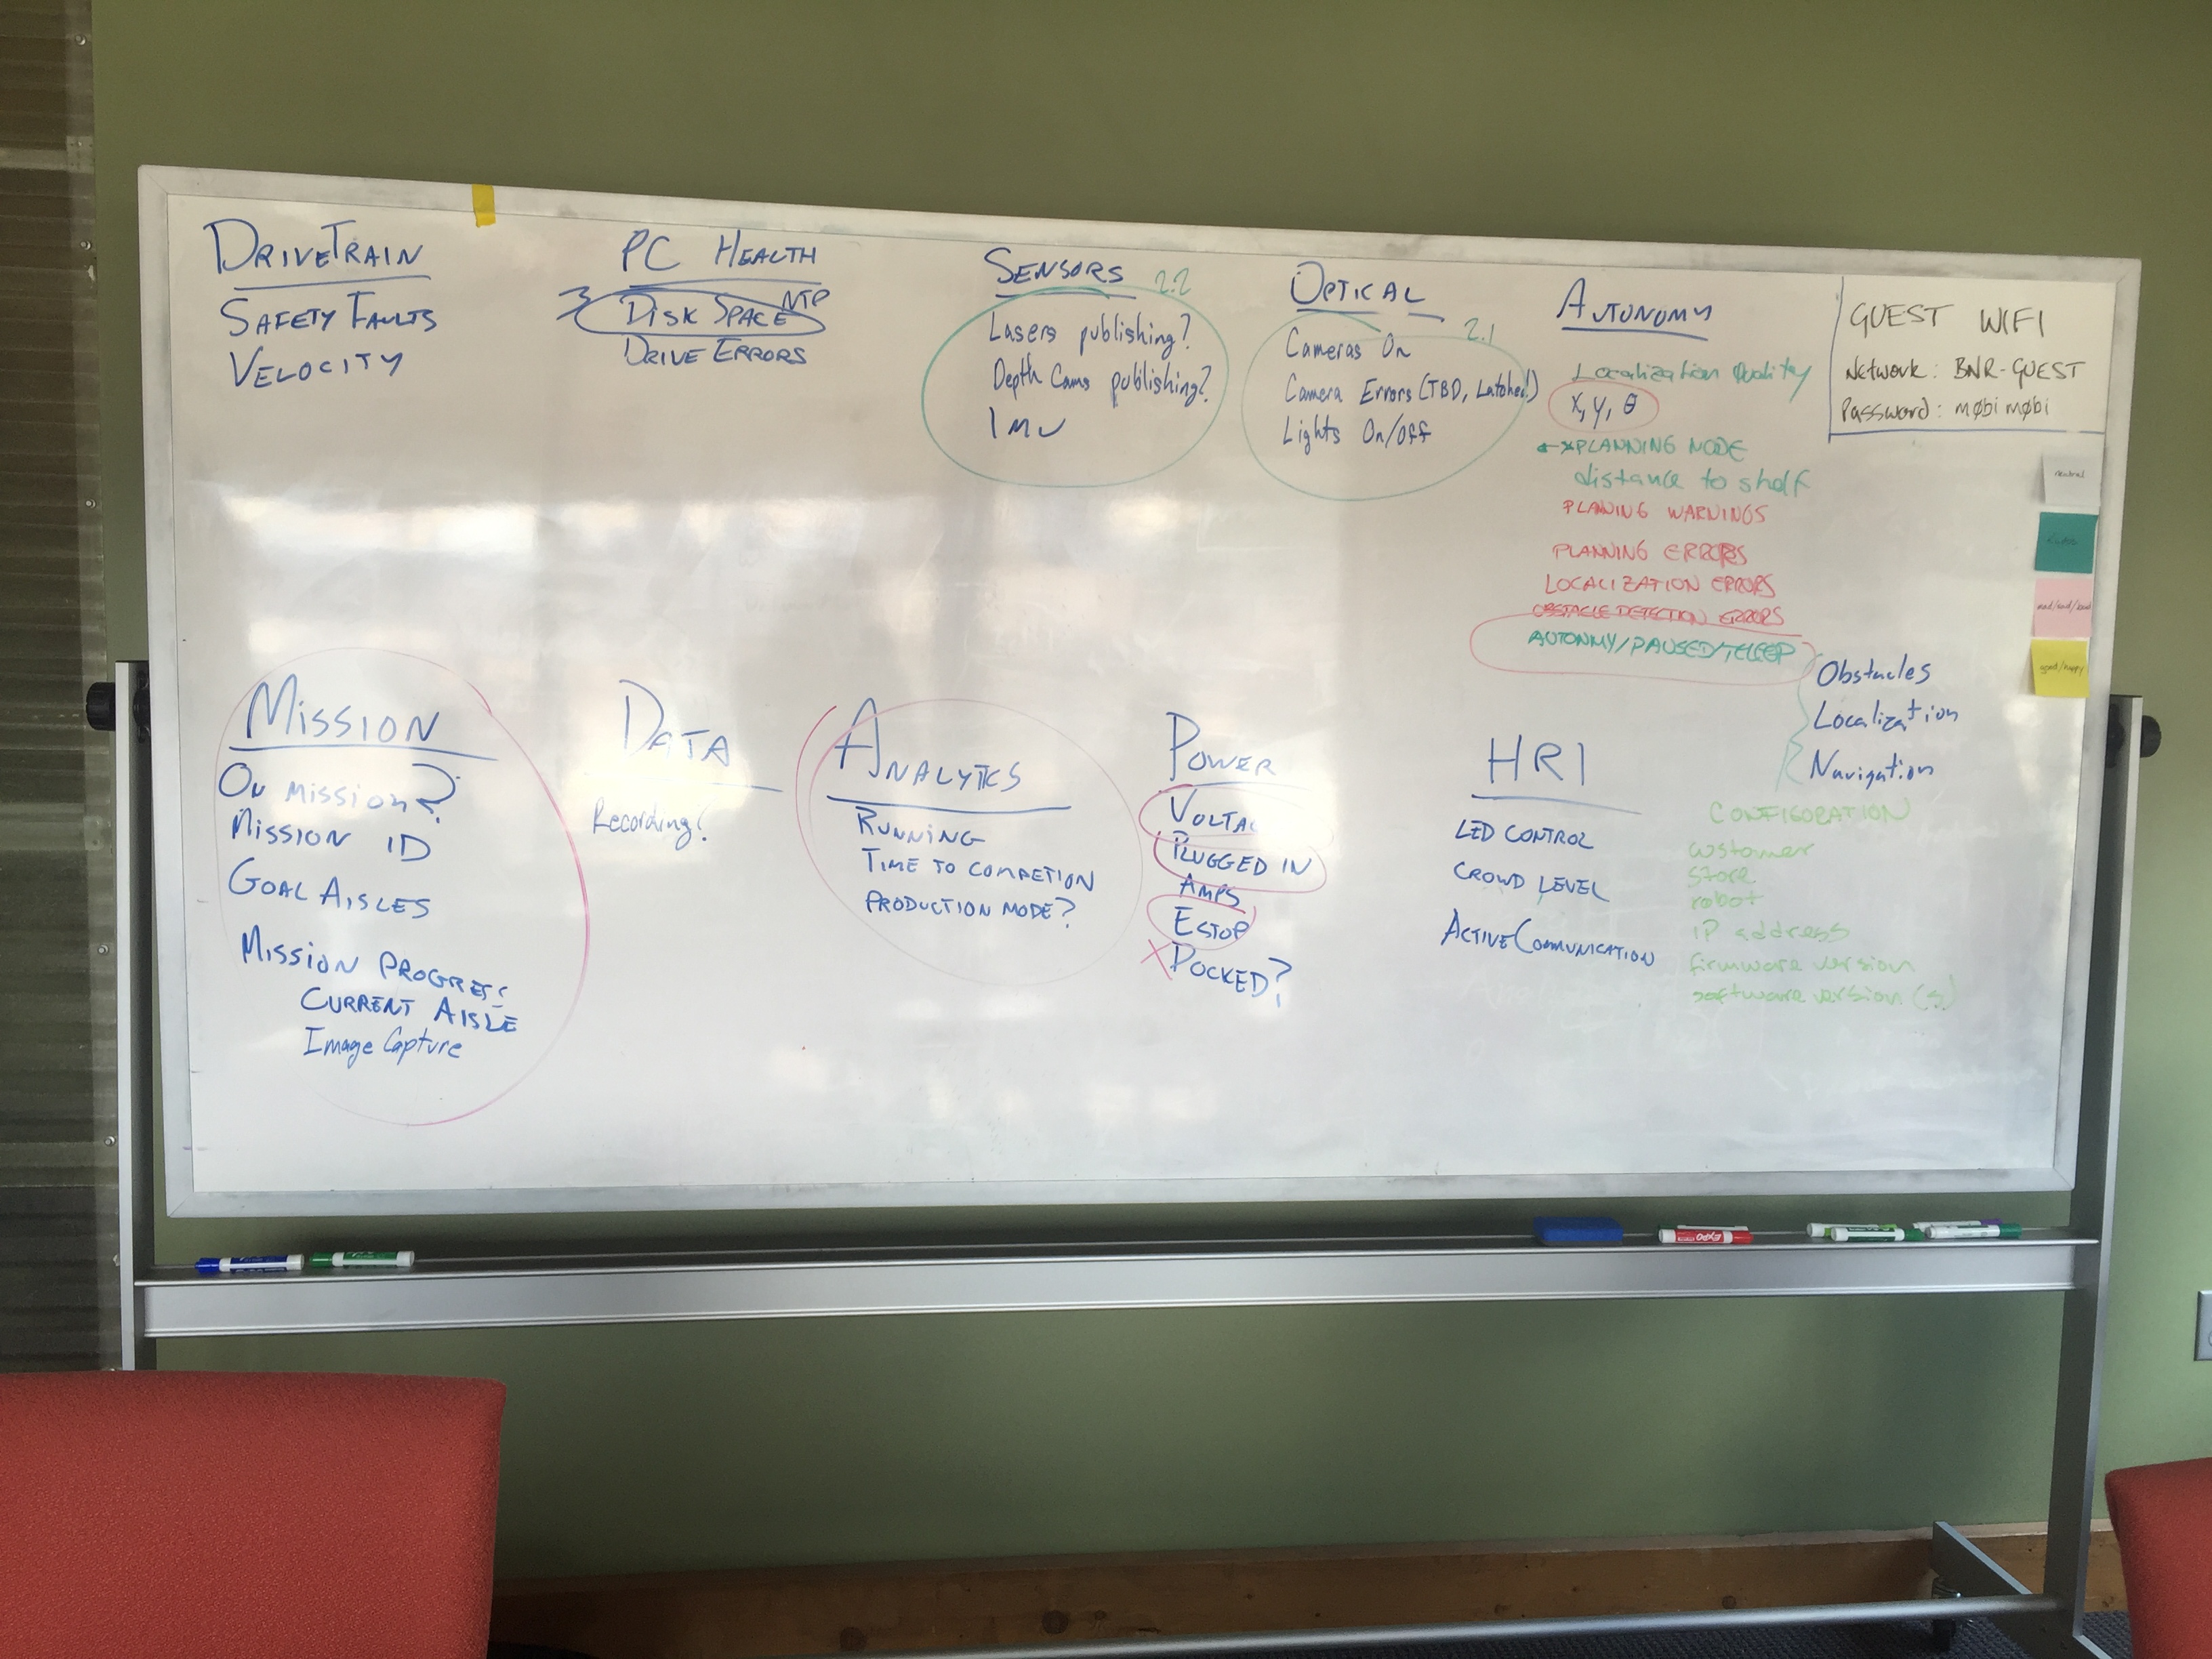 DRIVETRAIN
SAFETY FAULTS
VELOCITY
PC HEALTH
NTP
3 DISK SPACE
DRIVE ERRORS
SENSORS 2.2
Lasers publishing?
Depth Cams publishing?
IMU
OPTICAL
2.1
Cameras On
Camera Errors (TBD, Latched!)
Lights On/Off
AUTONOMY
Localization Quality
x, y, θ
PLANNING NODE
distance to shelf
PLANNING WARNINGS
PLANNING ERRORS
LOCALIZATION ERRORS
OBSTACLE DETECTION ERRORS
AUTONMY/PAUSED/TELEOP
Obstacles
Localization
Navigation
GUEST WIFI
Network: BNR-GUEST
Password: møbimøbi
neutral
mad/sad/bad
good/happy
MISSION
ON MISSION?
MISSION ID
GOAL AISLES
MISSION PROGRESS
CURRENT AISLE
Image Capture
DATA
Recording?
ANALYTICS
RUNNING
TIME TO COMPETION
PRODUCTION MODE?
POWER
PLUGGED IN
AMPS
ESTOP
X DOCKED?
HRI
LED CONTROL
CROWD LEVEL
ACTIVE COMMUNICATION
CONFIGORATION
customer
store
robot
IP address
firmware version
software version (s)
EXPO